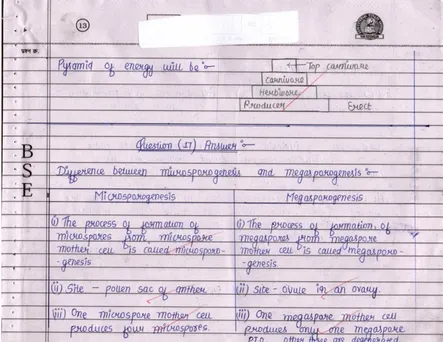 13
प्रश्न क्र.
Pyramid of energy will be :-
Top carnivore
carnivore
Herbivore
Producer
Erect
Question (17) Answer :-
BSE
Difference between microsporogenesis and megasporogenesis :-
Microsporogenesis
Megasporogenesis
(i) The process of formation of
microspores from microspore
mother cell is called microsporo-
-genesis
(i) The process of formation of
megaspores from megaspore
mother cell is called megasporo-
-genesis.
(ii) Site - pollen sac of anther.
(ii) Site - ovule in an ovary.
(iii) One microspore mother cell
produces four microspores.
(iii) One megaspore mother cell
produces only one megaspore
other three are degenerated